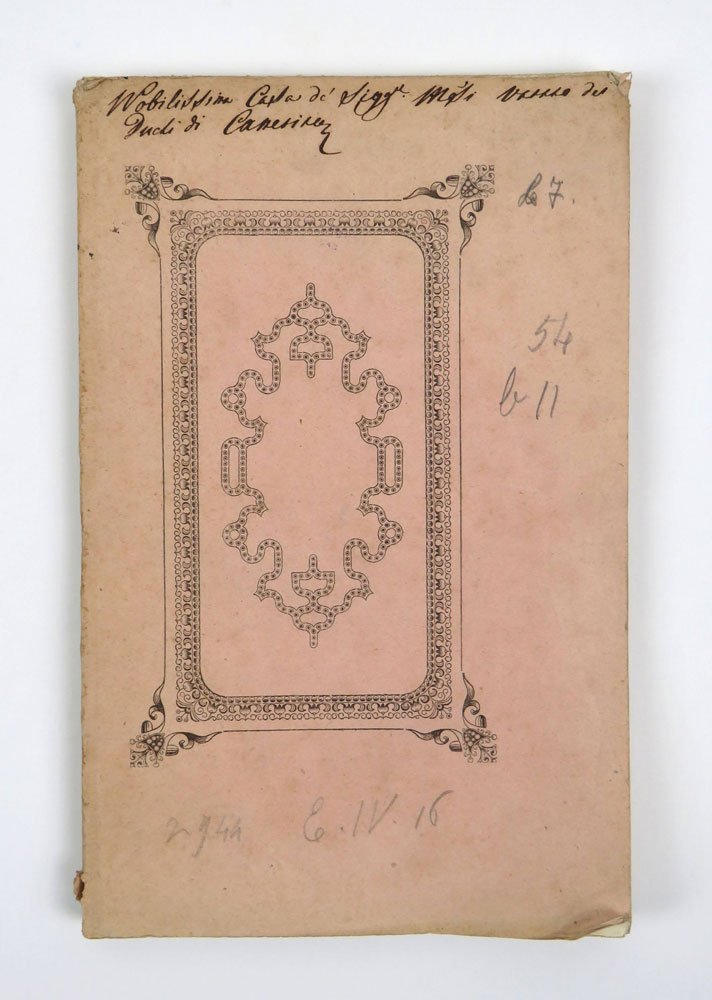 Nobilissima Casa de' Sigg.ri Msi Varano dei
Duchi di Camerino
b 7.
54
b 11
2944 E. IV. 16